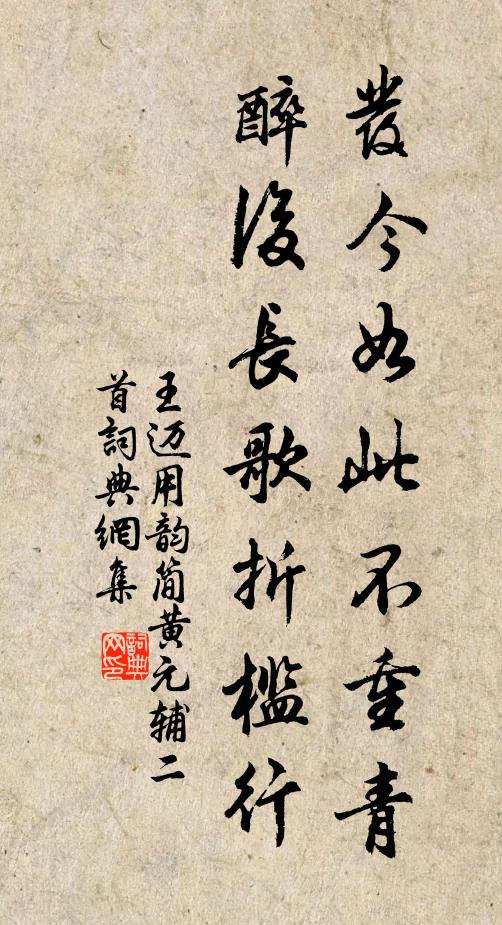 发今如此不重青
醉後長歌折檻行
王迈用韵简黄元辅二
首詞典網集
詞典
网印